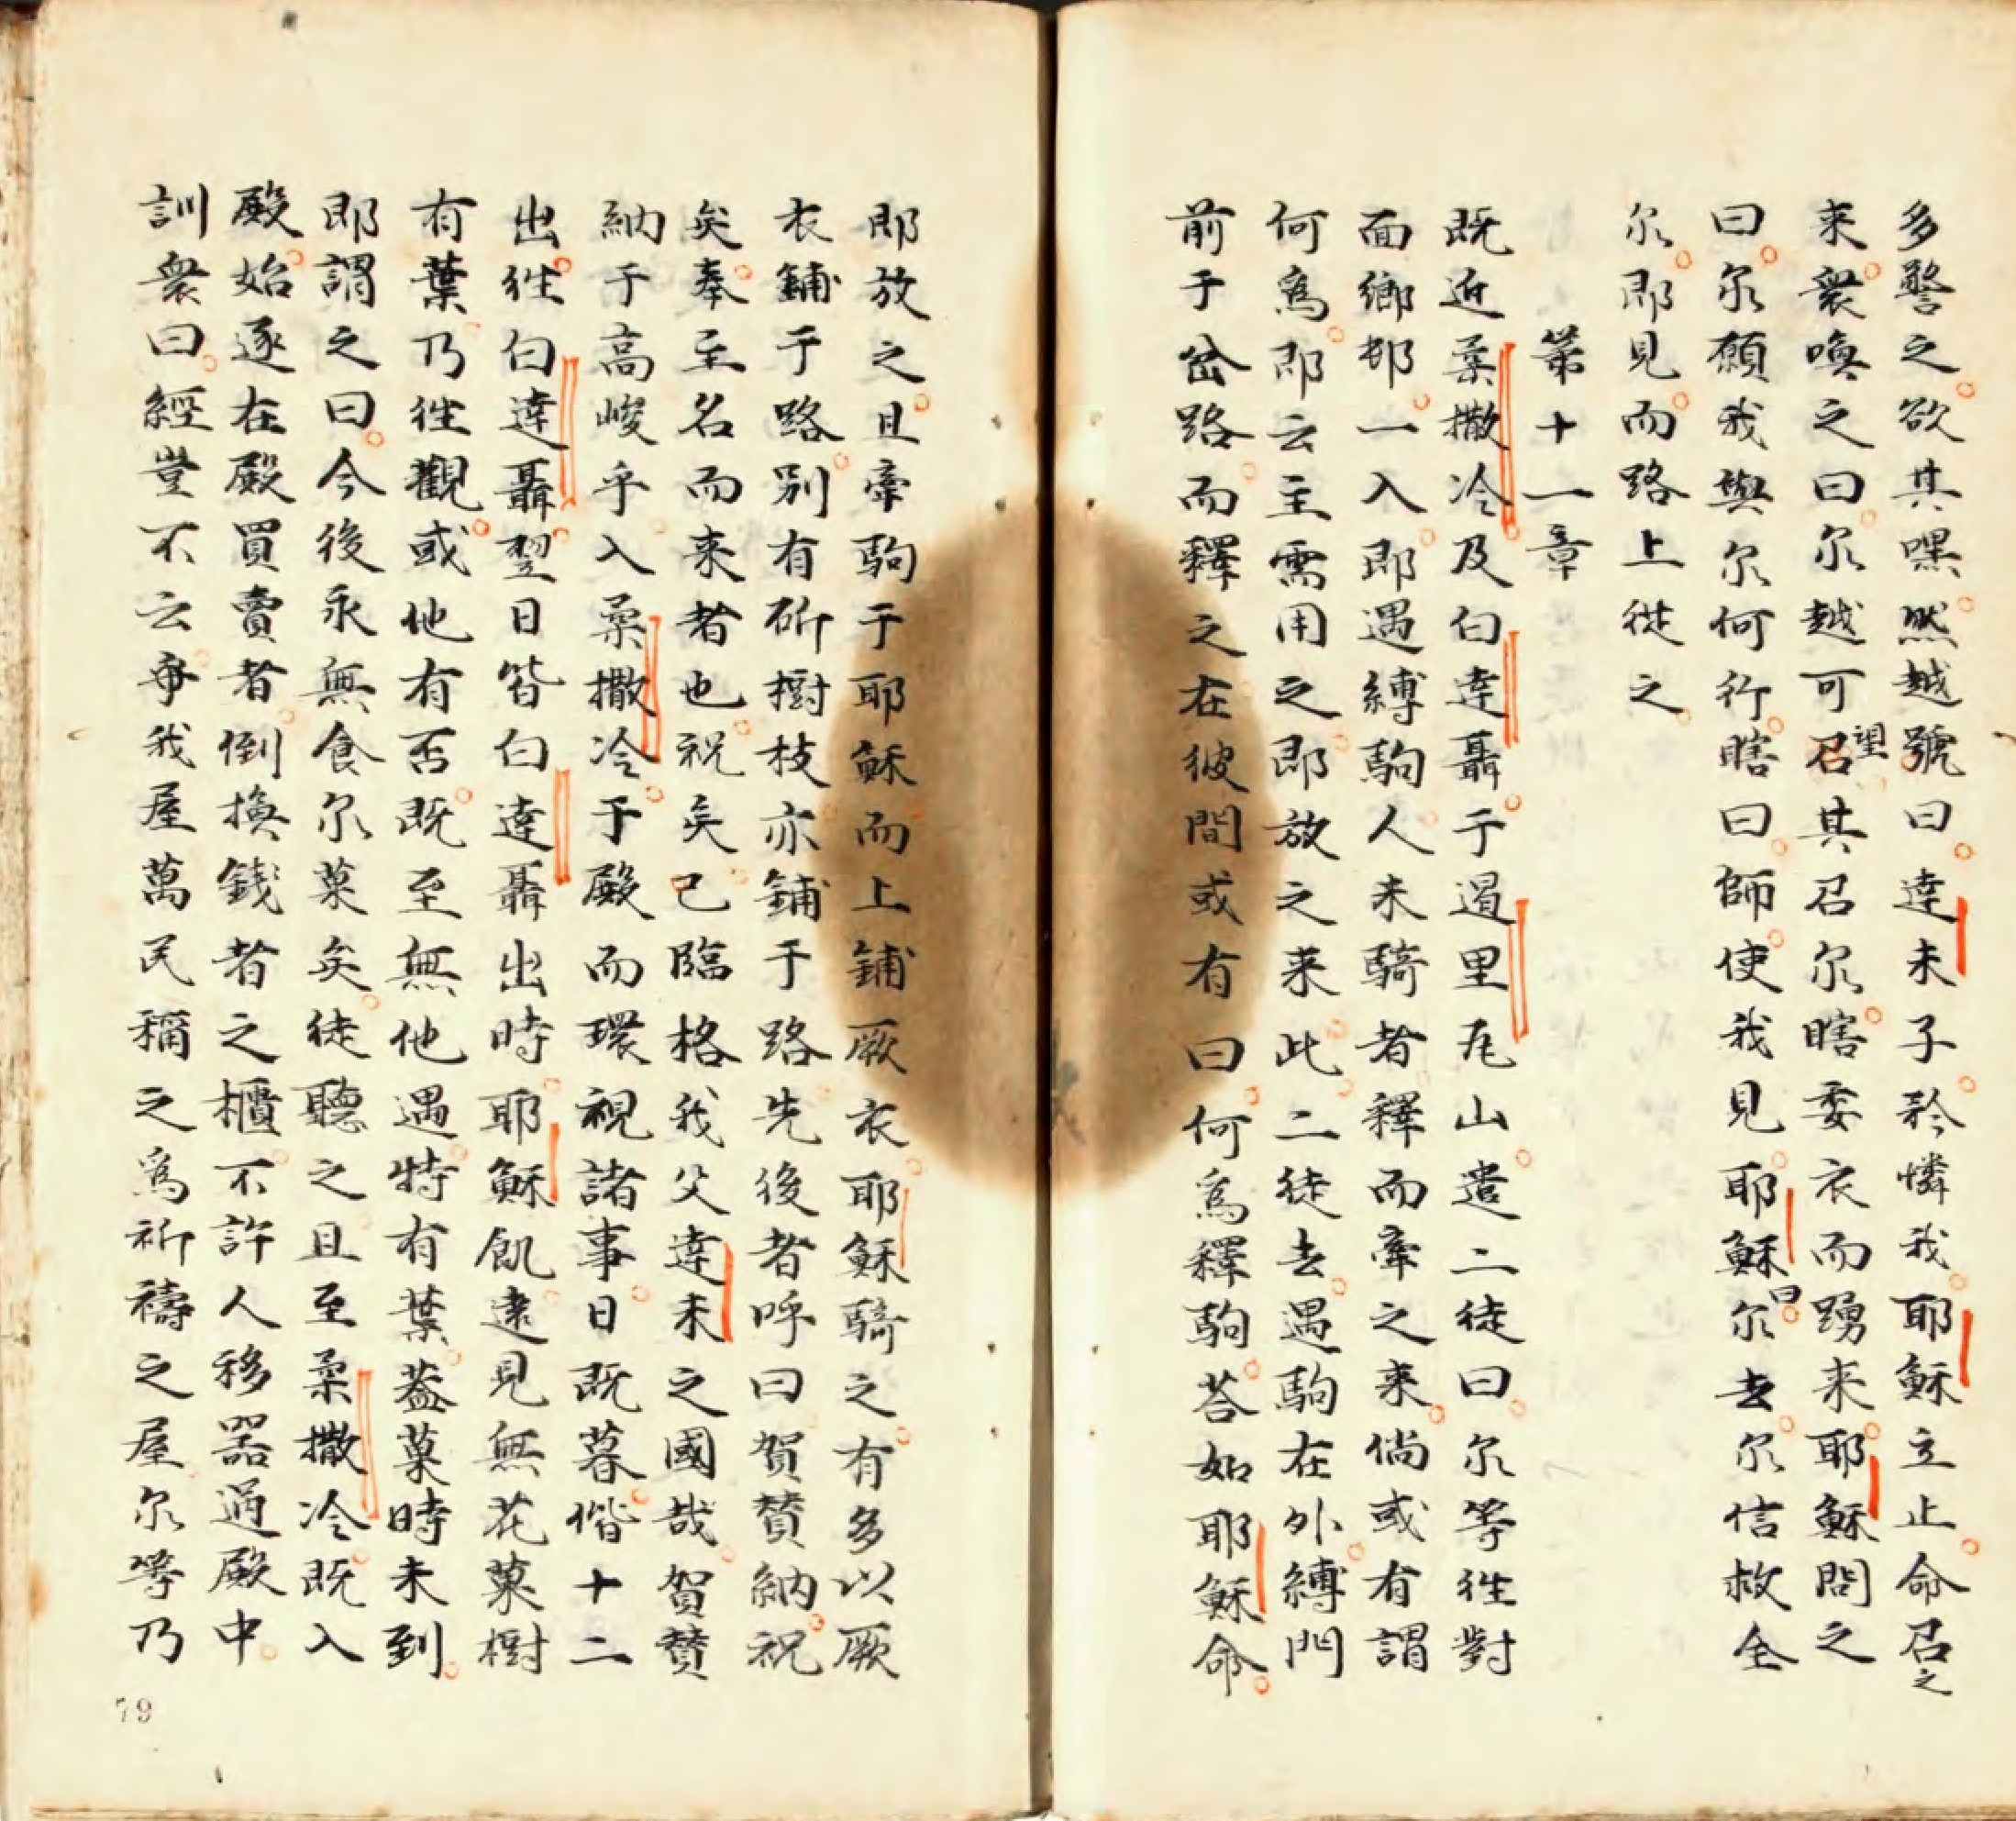 多警之欲其嘿然越號曰達未子矜憐我耶穌立止命召之
来衆喚之曰尔越可望召其召尔瞎委衣而踴来耶穌問之
曰尔願我與尔何行瞎曰師使我見耶穌曰尔去尔信救全
尔即見而路上從之
第十一章
既近柔撒冷及白達聶于遏里瓦山遣二徒曰尔等往對
面鄉邨一入即遇縛駒人未騎者釋而牽之来倘或有謂
何為即云主需用之即放之来此二徒去遇駒在外縛門
前于岔路而釋之在彼間或有曰何為釋駒荅如耶穌命
即放之且牽駒于耶穌而上鋪厥衣耶穌騎之有多以厥
衣鋪于路别有斫樹枝亦鋪于路先後者呼曰賀賛納祝
矣奉至名而来者也祝矣已臨格我父達未之國哉賀賛
納于高峻乎入柔撒冷于殿而環視諸事日既暮偕十二
出徃白達聶翌日皆白達聶出時耶穌飢逺見無花菓樹
有葉乃徃觀或他有否既至無他遇特有葉葢菓時未到
即謂之曰今後永無食尔菓矣徒聽之且至柔撒冷既入
殿始逐在殿買賣者倒換錢者之櫃不許人移器過殿中
訓衆曰經豈不云乎我屋萬民稱之為祈禱之屋尔等乃
79